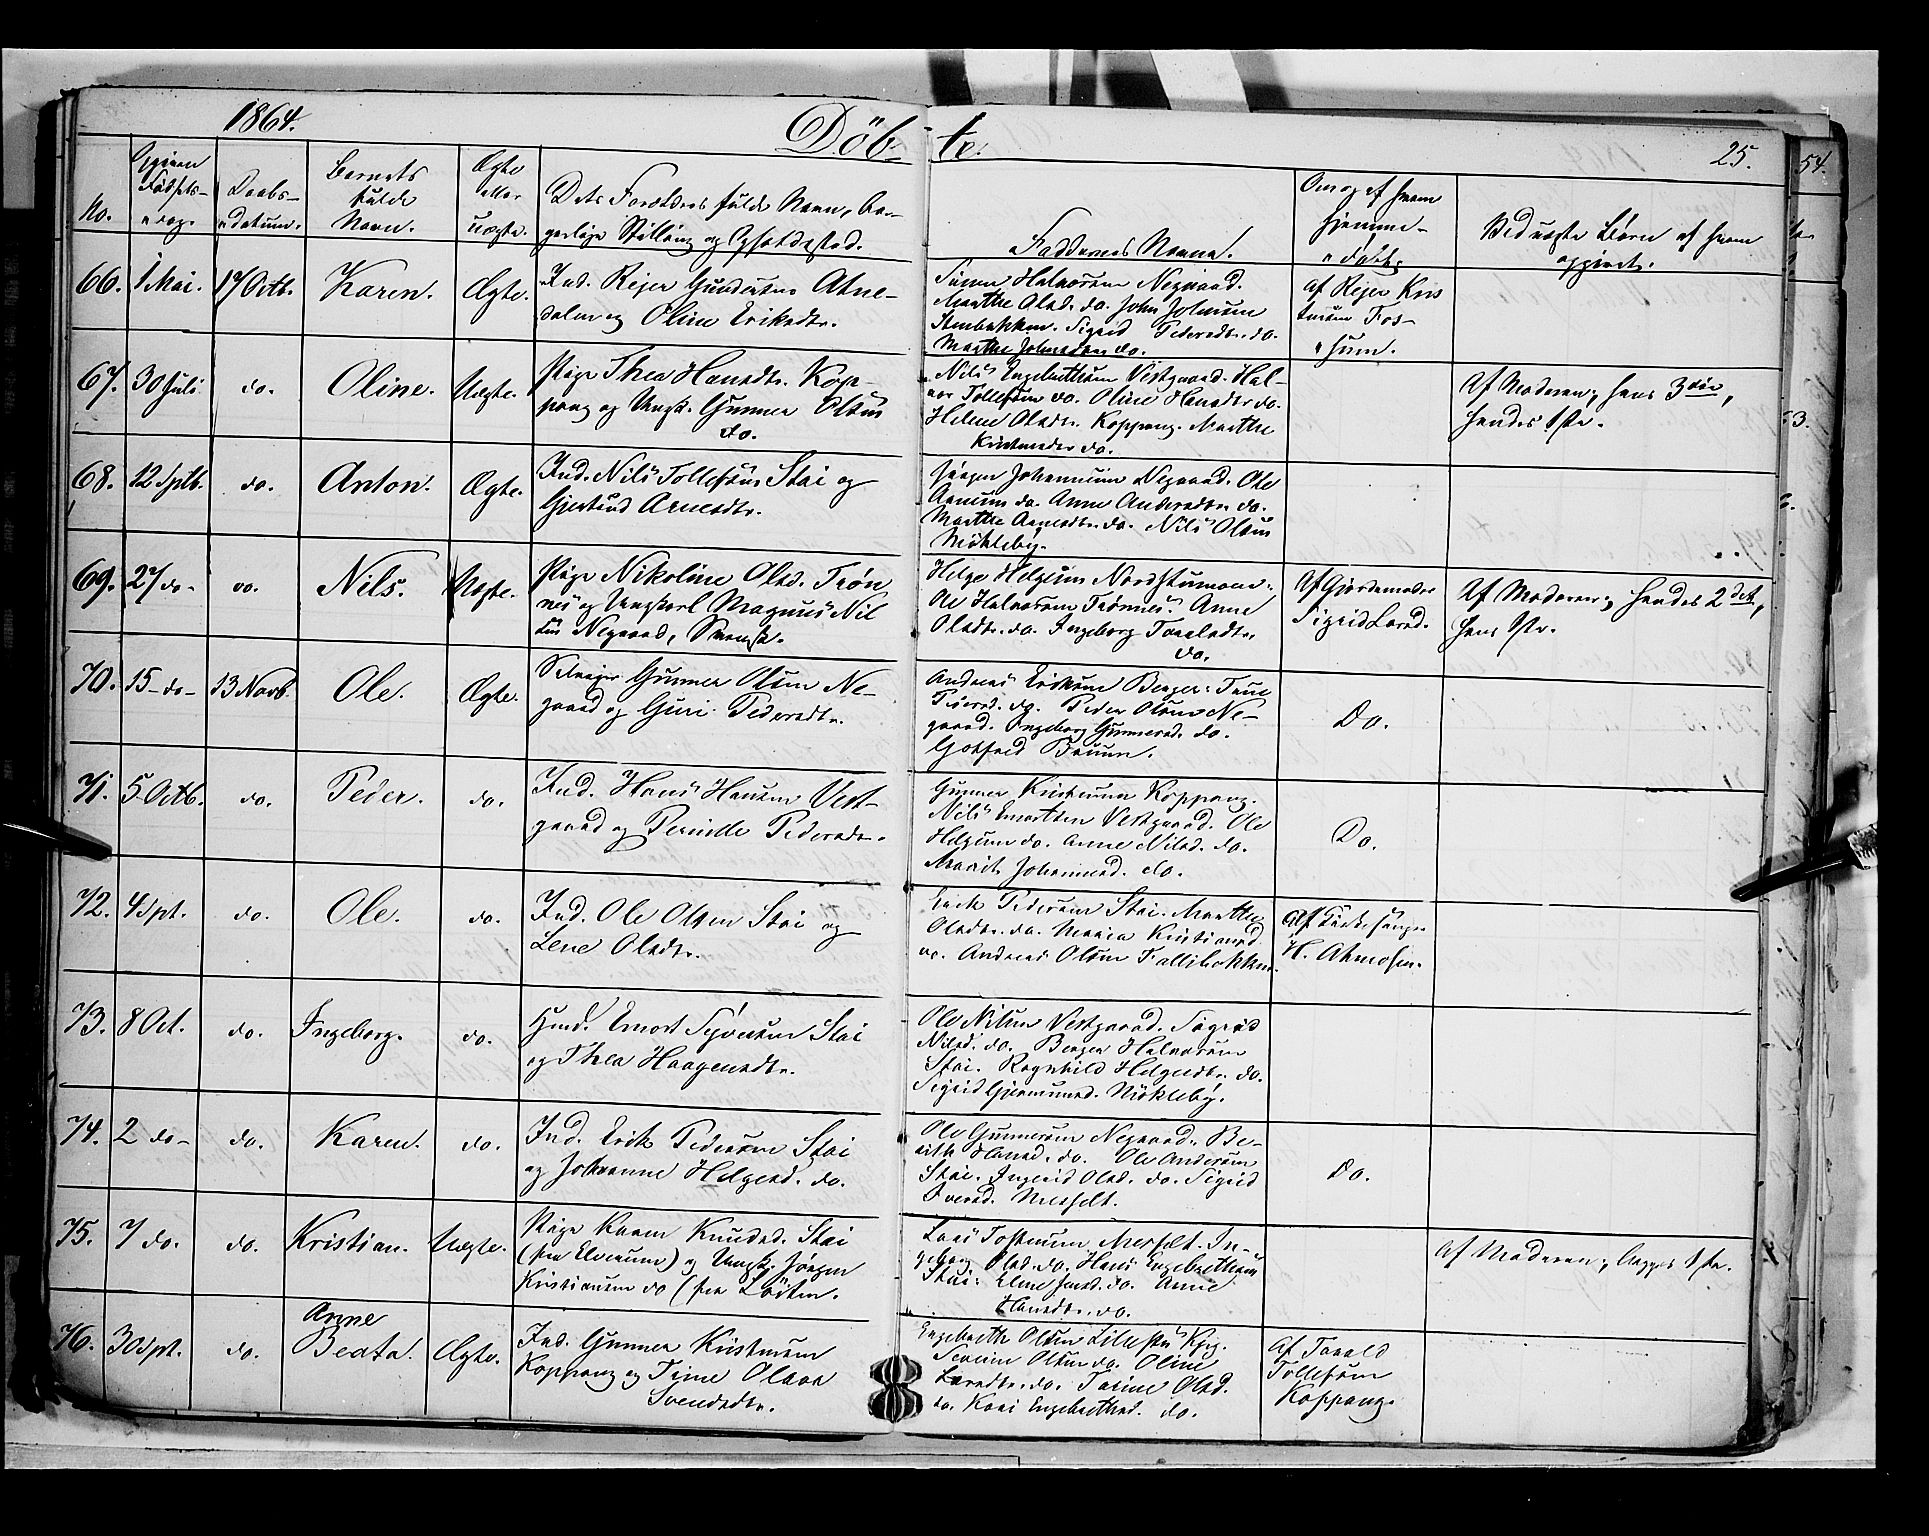 1864.
Döb-
te.
25.
54.
No.
Fødsels-
Daabs-
datum.
Barnets
fulde
Navn.
Ægte
eller
uægte.
Dets Forældres fulde Navn, bor-
gerlige Stilling og Opholdssted.
Faddernes Navne.
Om og af hvem
hjemme-
døbt.
Ved uægte Børn af hvem
opgivet.
66.
1 Mai.
17 Octb.
Karen.
Ægte.
Ind. Rejer Gundersen Atne-
dalen og Oline Eriksdtr.
Simen Halvorsen Negaard.
Marthe Olsd. do. John Johnsen
Stenbakken. Sigrid Pedersdtr. do.
Marthe Johnsdtr do.
Af Rejer Kris
tensen Fos-
hum.
67.
30 Juli
do.
Oline.
Uægte.
Pige Thea Hansdtr. Kop-
pang og Ungk. Gunner Olsen
do.
Nils Engebrethsen Vestgaard. Hal-
vor Tollefsen do. Oline Hansdtr do.
Helene Olsdtr. Koppang. Marthe
do.
Af Moderen; hans 3die,
hendes 1ste.
68.
12 Sptb.
do.
Anton.
Ægte.
Ind. Nils Tollefsen Stai og
Gjertrud Arnesdtr.
Jørgen Johannesen Negaard. Ole
Arnesen do. Anne Andersdtr. do.
Marthe Arnesdtr. do. Nils Olsen
Møkleby.
69.
27 do-
do.
Nils.
Uægte.
Pige Nikoline Olsd. Trøn
nes og Ungkarl Magnus Nil
sen Negaard, Svensk.
Helge Helgesen Nordstumoen.
Ole Halvorsen Trønnes. Anne
Olsdtr. do. Ingeborg Taraldsdtr.
do.
Af Gjordemoder
Sigrid Larsd.
Af Moderen; hendes 2det,
hans 1ste.
70.
15-do-
13 Novb.
Ole.
Ægte.
Selvejer Gunner Olsen Ne-
gaard og Guri Pedersdtr.
Andreas Eriksen Berger. Trine
Pedersd. do. Peder Olsen Ne-
gaard. Ingeborg Gunnersd. do.
Gotfred
Do.
71.
5 Octb.
do.
Peder.
do.
Ind. Hans Hansen Vest-
gaard og Pernille Pedersdtr.
Gunner Kristensen Koppang.
Nils Emortsen Vestgaard. Ole
Helgesen do. Anne Nilsd. do.
Marit Johannesd. do.
Do.
72.
4 Spt.
do.
Ole.
do.
Ind. Ole Olsen Stai og
Lene Olsdtr.
Erik Pedersen Stai. Marthe
Olsdtr. do. Maria Kristiansd
do. Andreas Olsen Tallibakken.
Af Kirkesanger
H. Atneosen.
73.
8 Oct.
do.
Ingeborg.
do.
Husm. Emort Syversen Stai
og Thea Haagensdtr.
Ole Nilsen Vestgaard. Sigrid
Nilsd. do. Berger Halvorsen
Stai. Ragnhild Helgesdtr. do.
Sigrid Gjermundsd. Møkleby.
74.
2 do-
do.
Karen.
do.
Ind. Erik Pedersen Stai
og Johanne Helgesd. do.
Ole Gunnersen Negaard. Be-
rith Hansd. do. Ole Andersen
Stai. Ingrid Olsd. do. Sigrid
Iversd. Messelt.
Do.
75.
7 do.
do.
Kristian.
Uægte.
Pige Karen Knudsd. Stai
(fra Elverum) og Ungk. Jørgen
Kristiansen do (fra Løiten.
Lars Tostensen Messelt. In-
geborg Olsd. do. Hans Engebrethsen
Stai. Eline Jensd. do. Anne
Hansdtr. do.
Af Moderen; begges 1ste.
76.
30 Spt.
do.
Anne
Beata.
Ægte.
Ind. Gunner Kristensen
Koppang og Trine Olava
Svendsdtr.
Engebreth Olsen Lillestu Kpg.
Severin Olsen do. Oline
Larsdtr. do. Torine Olsd.
do. Kari Engebrethsd. do.
Af Tarald
Tollefsen
Koppang.